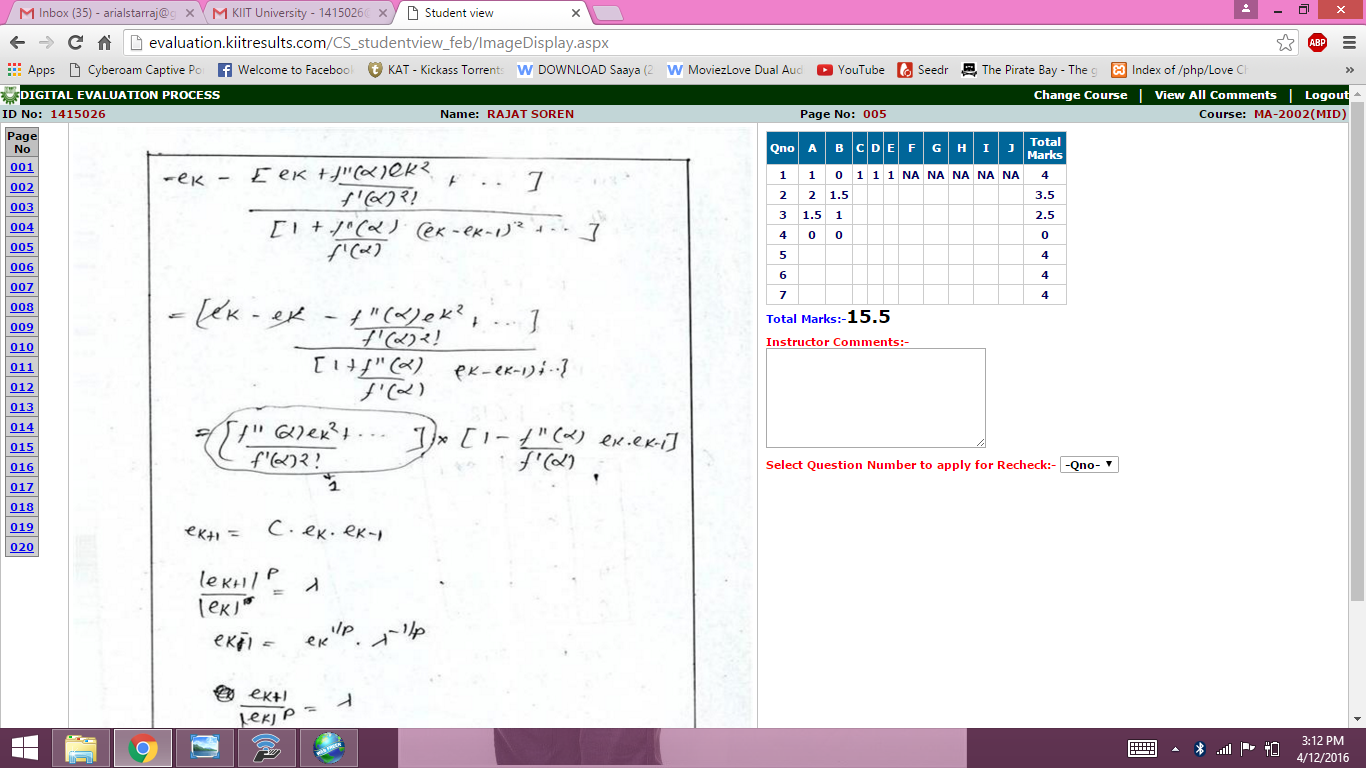 Inbox (35) - arialstarraj@g
KIIT University - 1415026@
Student view
evaluation.kiitresults.com/CS_studentview_feb/ImageDisplay.aspx
ABP
Apps Cyberoam Captive Po Welcome to Facebook KAT - Kickass Torrents DOWNLOAD Saaya (2 MoviezLove Dual Aud YouTube Seedr The Pirate Bay - The g Index of /php/Love Ch »
DIGITAL EVALUATION PROCESS Change Course | View All Comments | Logout
ID No: 1415026 Name: RAJAT SOREN Page No: 005 Course: MA-2002(MID)
Page No
001
002
003
004
005
006
007
008
009
010
011
012
013
014
015
016
017
018
019
020
= eK - [eK + f''(α)eK² / f'(α)2! + .. ]
[1 + f''(α) / f'(α) (eK-eK-1)² + .. ]
= [eK - eK - f''(α)eK² / f'(α)2! + ... ]
[1 + f''(α) / f'(α) eK-eK-1)+..]
= [f''(α)eK² + ... / f'(α)2! ] × [1 - f''(α) / f'(α) eK.eK-1]
1
eK+1 = C · eK · eK-1
|eK+1|P / |eK| = λ
eK-1 = eK^1/P · λ^-1/P
eK+1 / |eK|P = λ
Qno A B C D E F G H I J Total Marks
1 1 0 1 1 1 NA NA NA NA NA 4
2 2 1.5 3.5
3 1.5 1 2.5
4 0 0 0
5 4
6 4
7 4
Total Marks:-15.5
Instructor Comments:-
Select Question Number to apply for Recheck:- -Qno-
3:12 PM
4/12/2016